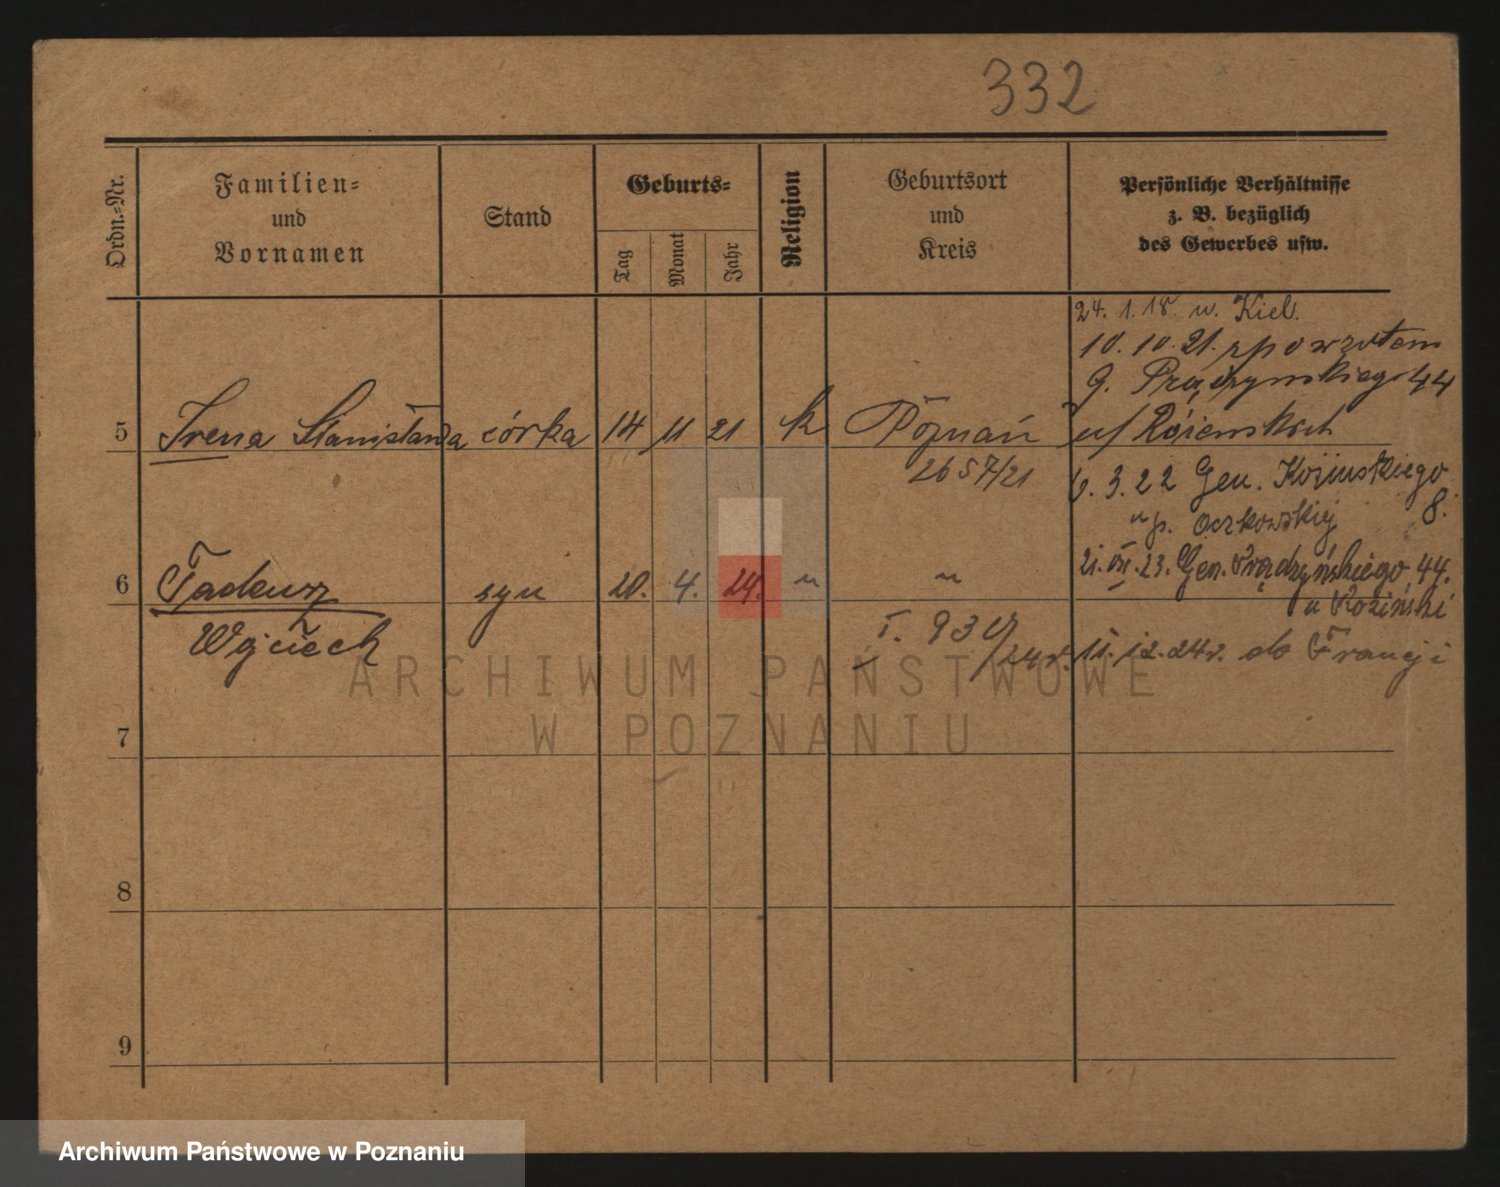 332
Ordn.-Nr.
Familien-
und
Vornamen
Stand
Geburts-
Tag
Monat
Jahr
Religion
Geburtsort
und
Kreis
Persönliche Verhältnisse
z. B. bezüglich
des Gewerbes usw.
24. 1. 18 w. Kiel.
10. 10. 21. z powrotem
G. Prądzynskiego 44
5 Irena Stanisława córka 14 11 21 k Poznań u/
2657/21
6. 3. 22 Gen. Kosinskiego
8.
u p. Oczkowskiej
21. VII. 23. Gen. Prądzyńskiego 44.
6 Tadeusz syn 20. 4. 24. " "
u Rozinski
Wojciech
I. 930/24r.
11. 12. 24r. do Francji
7
8
9
ARCHIWUM PAŃSTWOWE
W POZNANIU
Archiwum Państwowe w Poznaniu